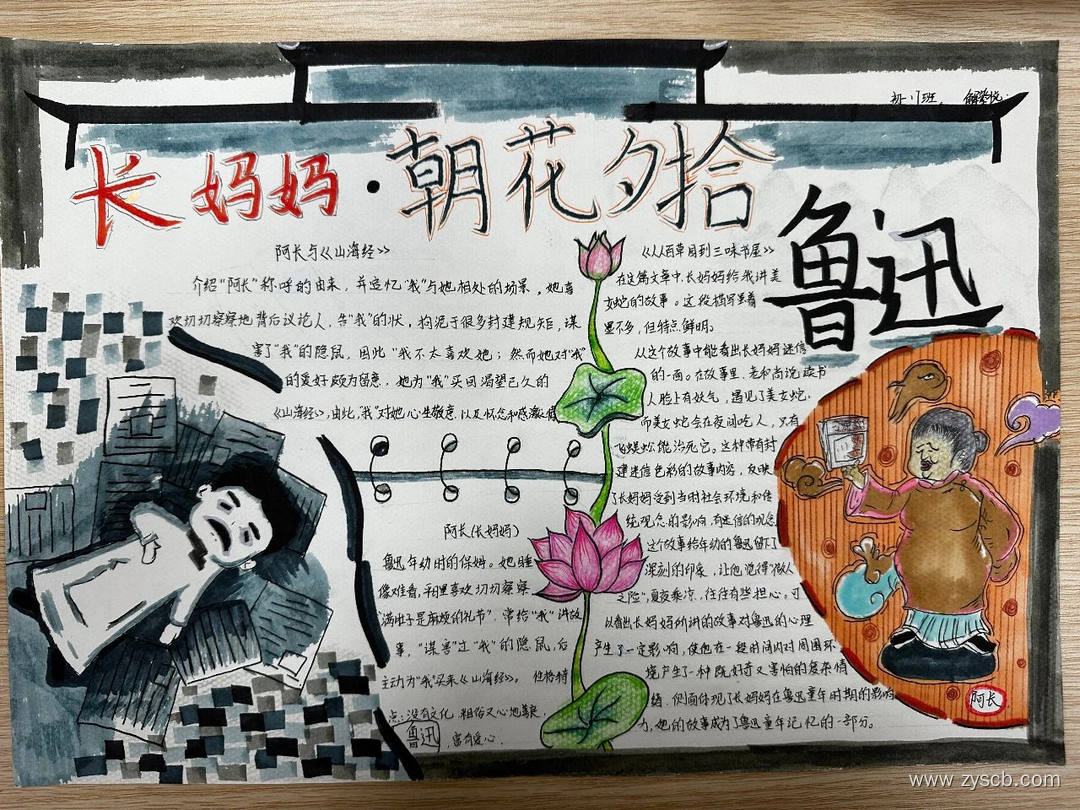 初一1班
长妈妈·朝花夕拾
鲁迅
阿长与《山海经》
介绍"阿长"称呼的由来，并追忆"我"与她相处的场景，她喜
欢切切察察地背后议论人，告"我"的状，拘泥于很多封建规矩，谋
害了"我"的隐鼠，因此"我不太喜欢她；然而她对"我"
的爱好颇为留意，她为"我"买回渴望已久的
《山海经》，由此，"我"对她心生敬意，以及怀念和感激之情
阿长（长妈妈）
鲁迅年幼时的保姆。她睡
像难看，平里喜欢切切察察
满肚子是麻烦的礼节"，常给"我"讲故
事，"谋害"过"我"的隐鼠，后
主动为"我"买来《山海经》。性格特
点：没有文化，粗俗又心地善良，
富有爱心
鲁迅
《从百草园到三味书屋》
在这篇文章中，长妈妈给我讲美
女蛇的故事。这段描写笔着
墨不多，但特点鲜明。
从这个故事中能看出长妈妈迷信
的一面。在故事里，老和尚说读书
人脸上有妖气，遇见了美女蛇，
而美女蛇会在夜间吃人，只有
飞蜈蚣能治死它，这种带有封
建迷信色彩的故事内容，反映
了长妈妈受到当时社会环境和传
统观念的影响，有迷信的观念
这个故事给年幼的鲁迅留下了
深刻的印象，让他觉得"做人
之险"，夏夜乘凉，往往有些担心。可
以看出长妈妈所讲的故事对鲁迅的心理
产生了一定影响，使他在一段时间内对周围环
境产生了一种既好奇又害怕的复杂情
绪，侧面体现了长妈妈在鲁迅童年时期的影响
力，她的故事成为了鲁迅童年记忆的一部分。
阿长
www.zyscb.com